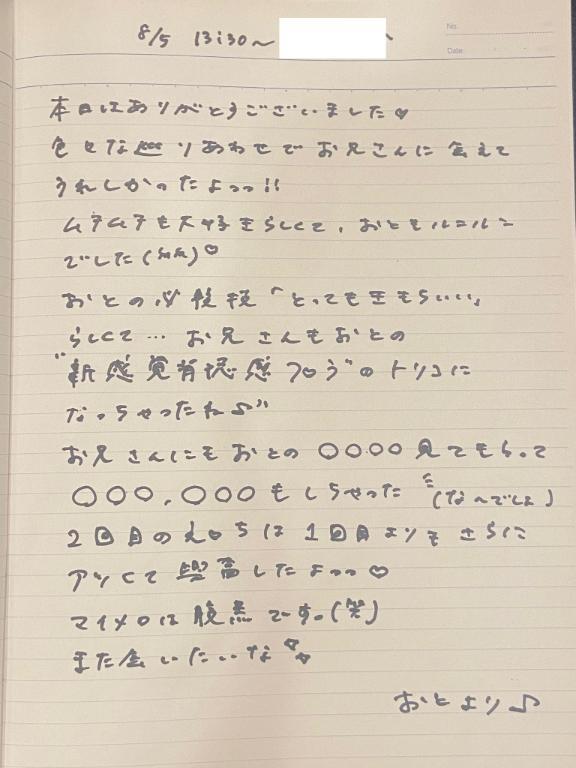 8/5 13:30～
No.
Date
本日はありがとうございました♡
色々な巡りあわせでお兄さんに会えて
うれしかったよっっ!!
ムチムチも大好きらしくて、おともルンルン
でした(笑)♡
おとの必殺技「とってもきもちいい」
らしくて…お兄さんもおとの
"新感覚有
感フロラ"のトリコに
なっちゃったね♪"
お兄さんにもおとの〇〇〇〇見てもらって
〇〇〇,〇〇〇もしちゃった (な～でしょ)
2回目のえっちは1回目よりもさらに
アツくて興奮したよっっ♡
マイメロは腹黒です。(笑)
また会いたいな
おとより♪